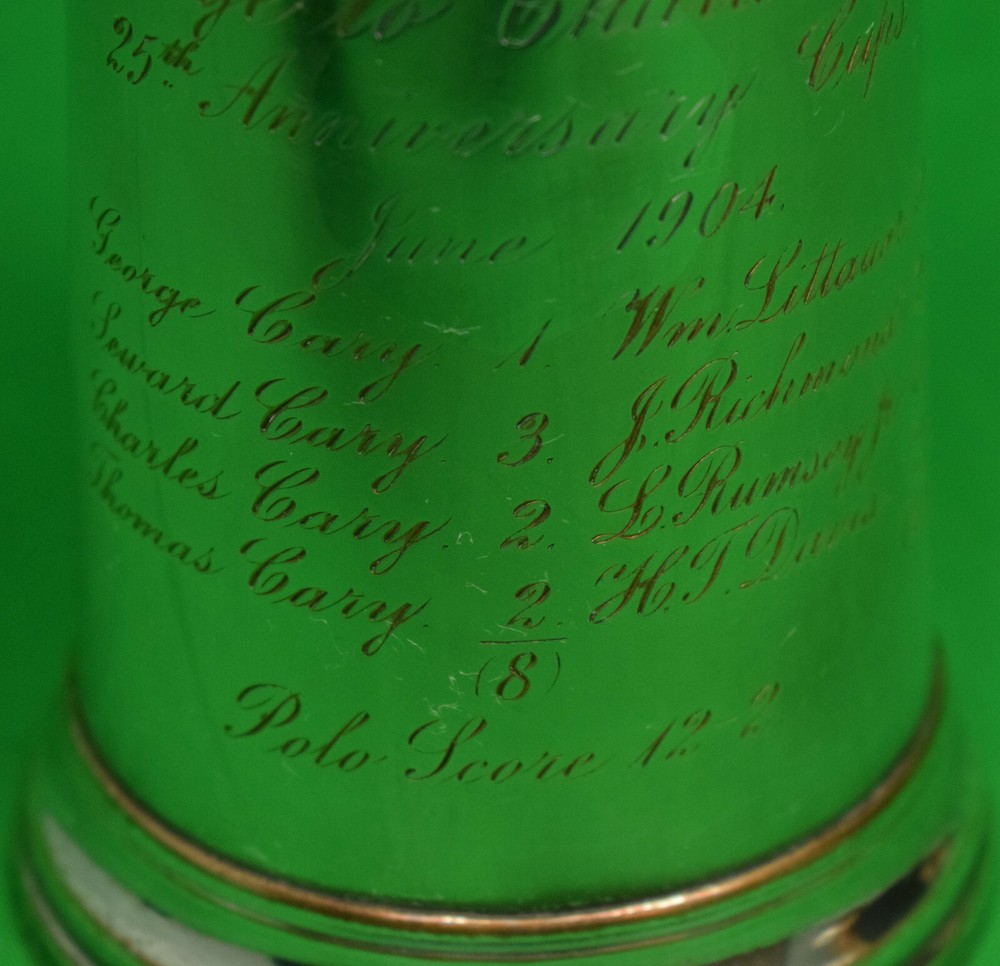 25th Anniversary Cups
June 1904.
George Cary. 1. Wm. Littauer
Seward Cary. 3. J. Richmond
Charles Cary. 2. L. Rumsey Jr
Thomas Cary. 2. H. T. Davis
(8)
Polo Score 12-2